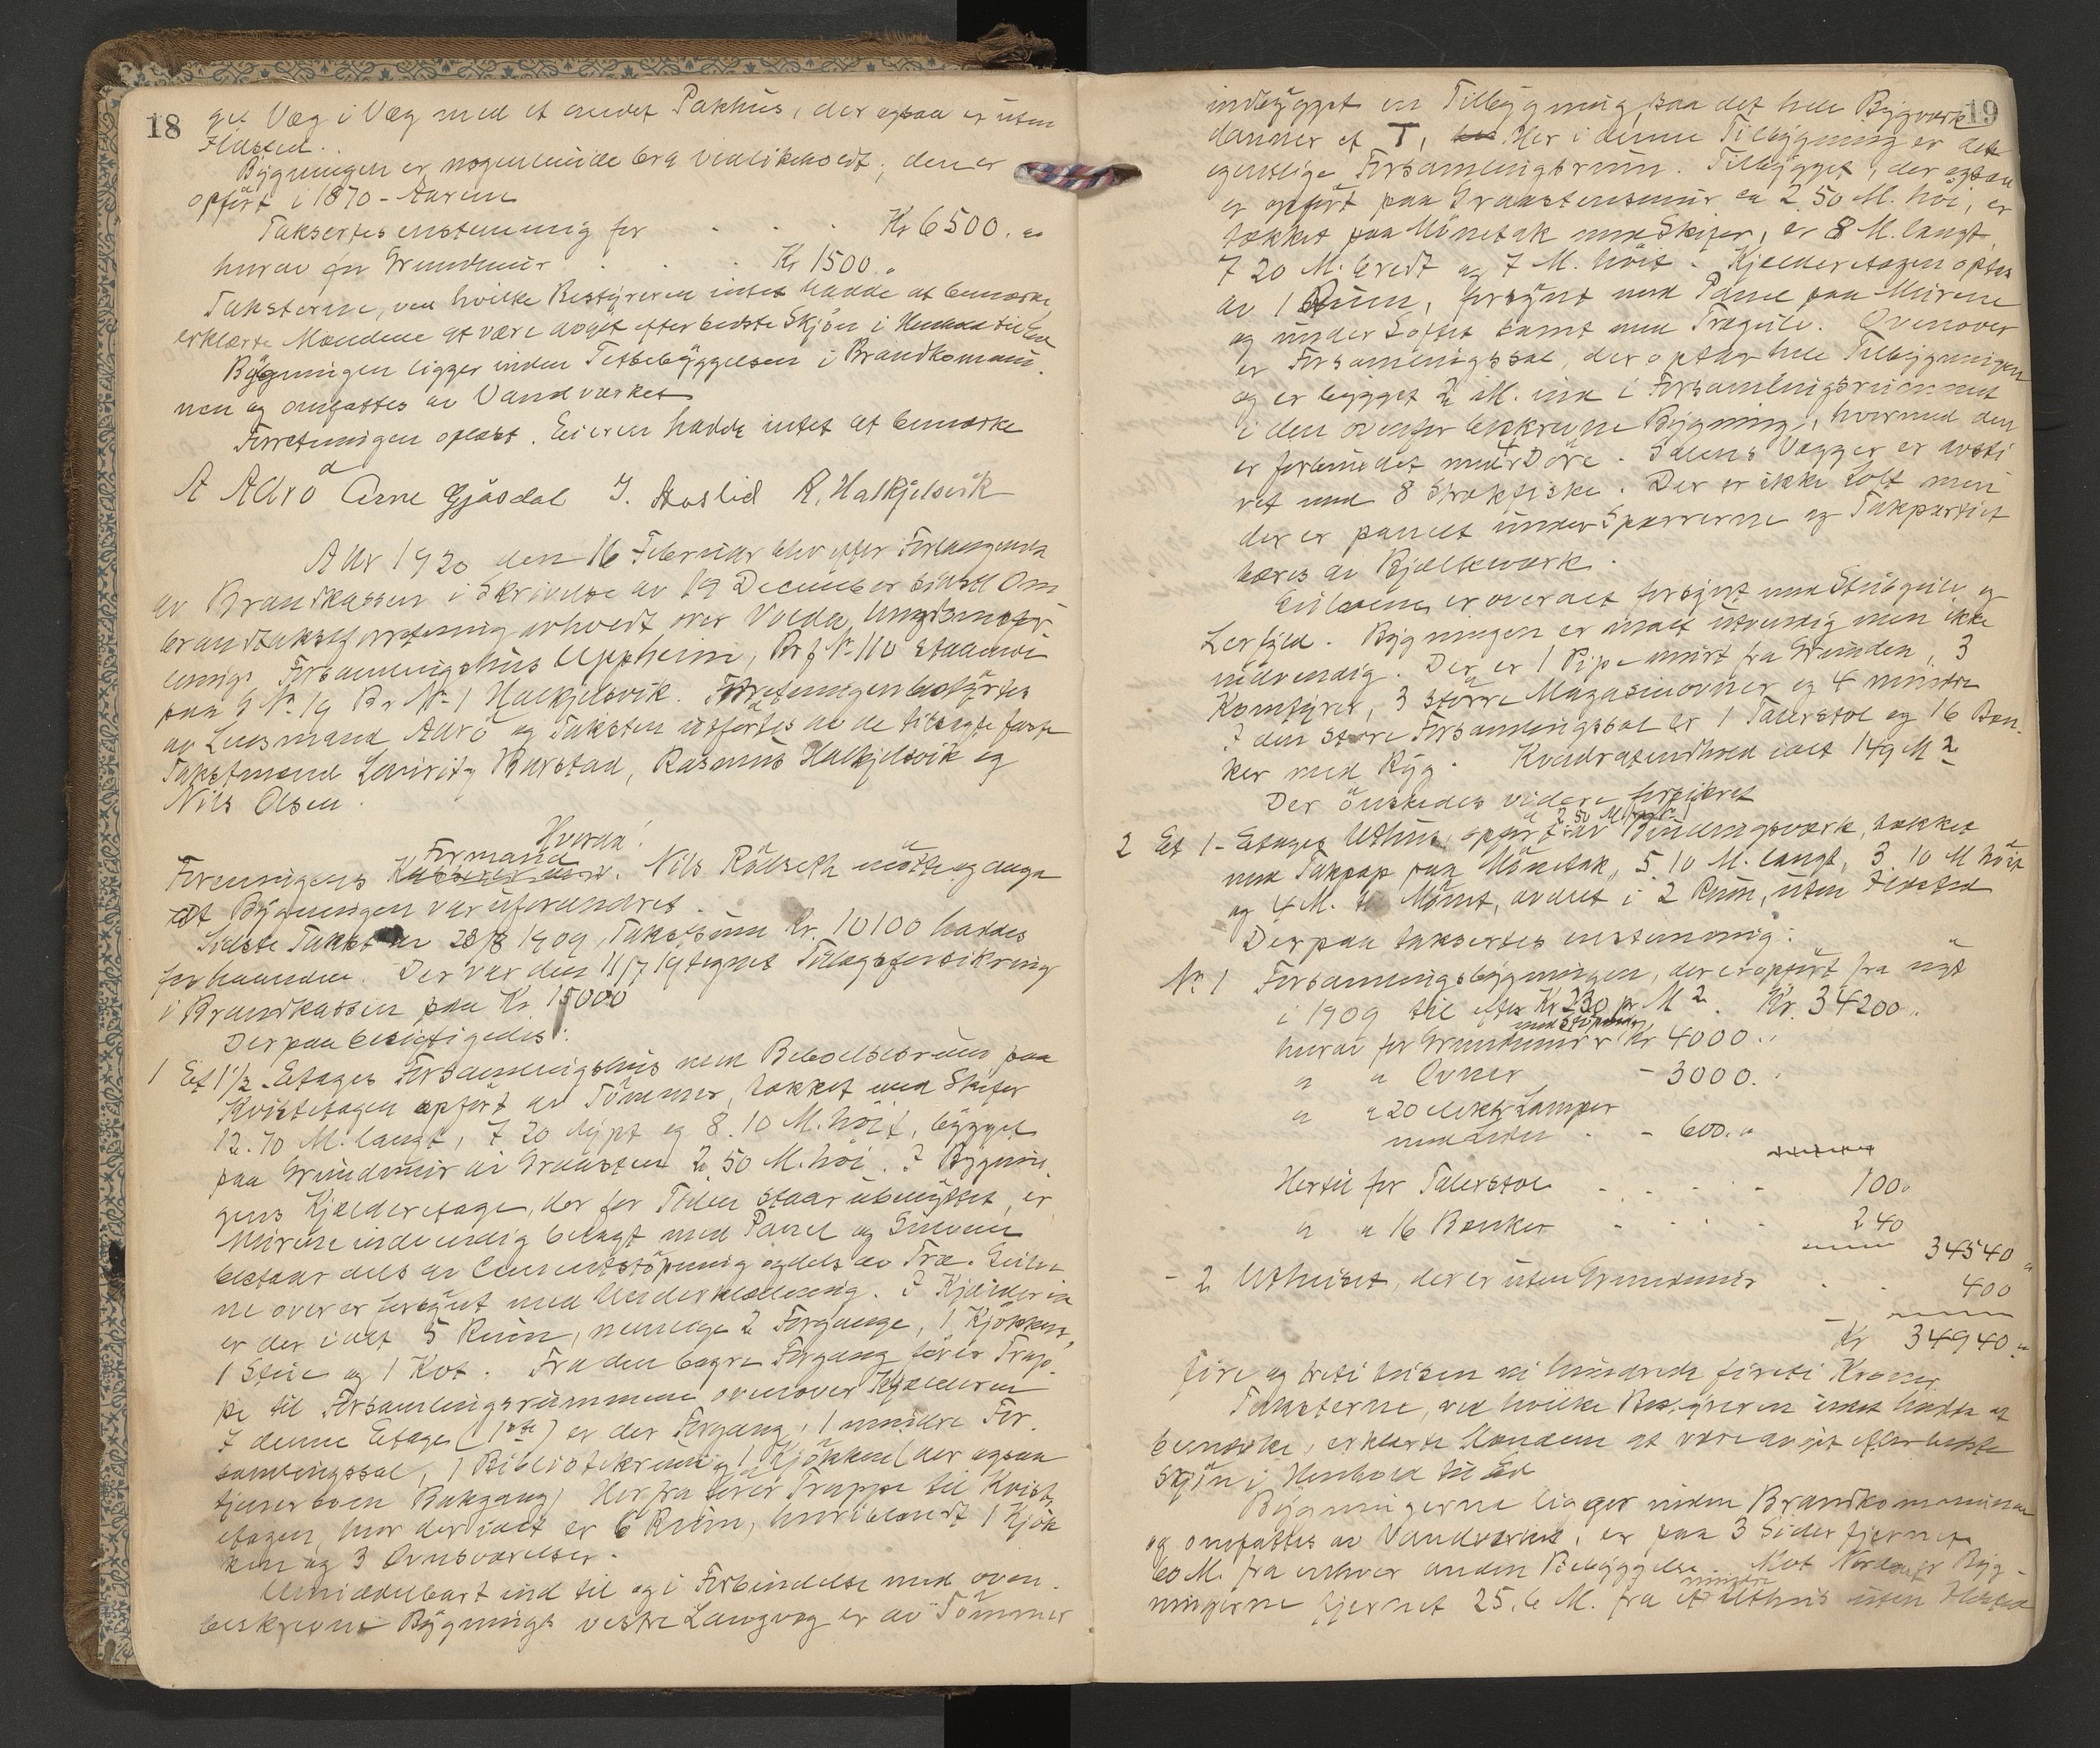 18
get Væg i Væg med et andet Pakhus, der ogsaa er uten
Ildsted.
Bygningen er nogenlunde bra vedlikeholdt; den er
opført i 1870-Aarene
Taksertes enstemmig for . . . Kr 6500. "
hvrav for Grundmur . . . Kr 1500. "
Taksterne, ved hvilke Bestyreren intet hadde at bemærke,
erklærte Mændene at være avgit efter bedste Skjøn i Henhold til Ed
Bygningen ligger inden Tetbebyggelsen i Brandkommu-
nen og omfattes av Vandværket
Forretningen oplæst. Eieren hadde intet at bemærke
A Aarø Arne Gjøsdal J. Aaslid R. Halkjelsvik
Aar 1920 den 16 Februar blev efter Forlangende
av Brandkassen i Skrivelse av 19 December sidstl Om
brandtakstforretning avholdt over Volda Ungdomsfor-
enings Forsamlingshus Uppheim, Brf No 110 staaende
paa G No 19 Br No 1 Halkjelsvik. Forretningen bestyrtes
av Lensmand Aarø og Taksten utførtes av de tilsagte faste
Takstmænd Lauritz Barstad, Rasmus Halkjelsvik og
Nils Olsen.
Hvorda!
Foreningens Formand Nils Rødseth møtte og angav
at Bygningen var uforandret.
Sidste Takst av 28/8 1909, Takstsum Kr. 10100 haddes
forhaanden. Der var den 11/7 19 tegnet Tillægsforsikring
i Brandkassen paa Kr 15000
Derpaa besigtigedes:
1 Et 1½-Etages Forsamlingshus med Beboelsesrum paa
Kvistetagen opført av Tømmer, tækket med Skifer
12.70 M. langt, 7 20 dypt og 8.10 M. høit, bygget
paa Grundmur av Graasten 2,50 M. høi. I Bygnin-
gens Kjælderetage, der for Tiden staar ubenyttet, er
Murene indvendig belagt med Panel og Gulvene
bestaar dels av Cementstøpning og dels av Træ. Gulve-
ne over er forsynt med Underkledning. I Kjælderen
er der ialt 5 Rum, nemlige 2 Forgange, 1 Kjøkken,
1 Stue og 1 Kot. Fra den bagre Forgang fører Trap-
pe til Forsamlingsrummene ovenover Kjælderen
I denne Etage (1ste) er der Forgang, 1 mindre For-
samlingssal, 1 Bibliotekrum og 1 Kjøkken (der ogsaa
tjener som Bakgang) Herfra fører Trappe til Kvist-
etagen, hvor der ialt er 6 Rum, hvoriblandt 1 Kjøk
ken og 3 Ovnsværelser.
Umiddelbart ind til og i Forbindelse med oven-
beskrevne Bygnings vestre Langvæg er av Tømmer
19
indbygget en Tilbygning, saa det hele Bygværk
danner et T, Her i denne Tilbygning er det
egentlige Forsamlingsrum. Tilbygget, der ogsaa
er opført paa Graastensmur ca 2.50 M. høi, er
tækket paa Mønetak med Skifer, er 8 M. langt,
7 20 M. bredt og 7 M. høit. Kjælderetagen optas
av 1 Rum, forsynt med Panel paa Murene
og under Loftet samt med Trægulv. Ovenover
er Forsamlingssal, der optar hele Tilbygningen
og er bygget 2 M. ind i Forsamlingsrummet
i den ovenfor beskrevne Bygning, hvormed den
er forbundet med 4 Døre. Salens Vægger er avsti
vet med 8 Strækfiske. Der er ikke Loft men
der er panelt under Sparrerne og Takpartiet
bæres av Bjælkeverk.
Gulvene er overalt forsynt med Stubgulv og
Lerfyld. Bygningen er malt utvendig men ikke
indvendig. Der er 1 Pipe murt fra Grunden, 3
Komfyrer, 3 større Magasinovner og 4 mindre
I den store Forsamlingssal er 1 Talerstol og 16 Bæn-
ker med Ryg. Kvadratindhold ialt 149 M 2
Der ønskedes videre forsikret
2 Et 1-Etages Uthus, opført av Bindingsværk, tækket
med Takpap paa Mønetak, 5.10 M. langt, 3.10 M høit
og 4 M. til Mønet, avdelt i 2 Rum, uten Ildsted
Derpaa taksertes enstemmig:
No 1 Forsamlingsbygningen, der er opført fra nyt
i 1909 til efter Kr 230 pr M 2. Kr. 34200 "
med Støpning
hvrav for Grundmur Kr 4000. "
" " Ovner - 3000. "
" " 20 elektr Lamper
med Leder . - 600. "
Hertil for Talerstol - - - - 100 "
" " 16 Bænker - - - - 240
34540 "
- 2 Uthuset, der er uten Grundmur . . 400
Kr 34940 "
fire og treti tusen ni hundrede firti Kroner.
Taksterne, ved hvilke Bestyreren intet hadde at
bemærke, erklærte Mændene at være avgit efter bedste
Skjøn i Henhold til Ed
Bygningerne ligger inden Brandkommunen
og omfattes av Vandværket, er paa 3 Sider fjernet
60 M. fra enhver anden Bebyggelse. Mot Norden er Byg-
ningerne fjernet 25.6 M. fra et mindre Uthus uten Ildsted